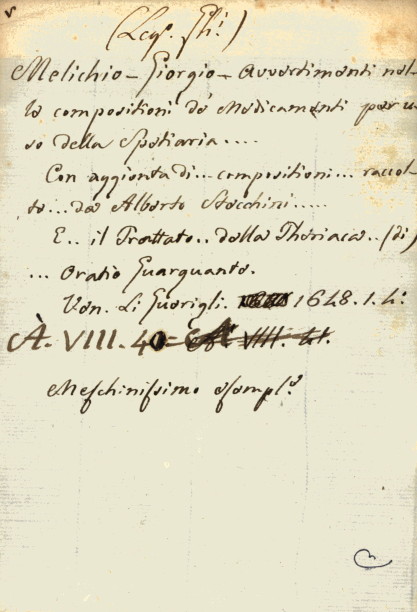 (Leg. Gli:)
Melichio – Giorgio – Avvertimenti nel-
le compositioni de' Medicamenti per u-
so della Spetiaria....
Con aggionta di... compositioni... raccol-
te... da Alberto Stecchini.....
E.. il Trattato.. della Theriaca.. (di)
... Oratio Guarguanto.
Ven. Li Guerigli. 1648. 1. 4:
A. VIII. 40 = VIII. 41.
Meschinissimo esempl.e